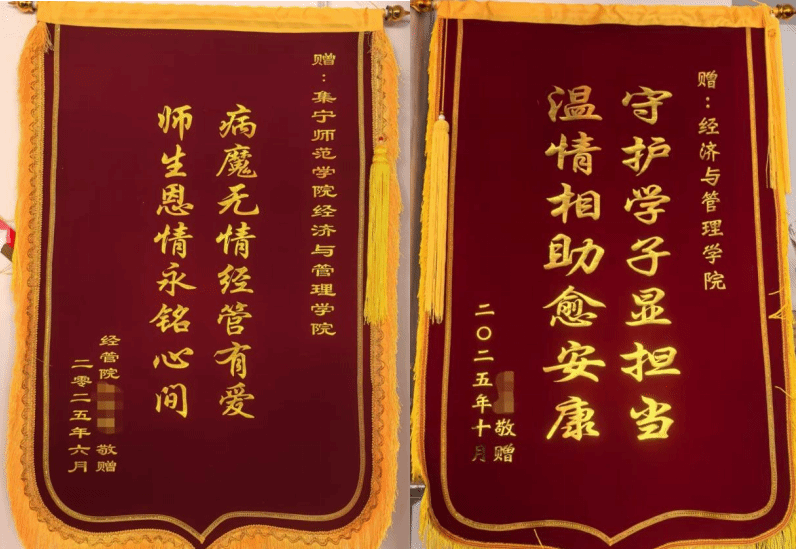 赠：集宁师范学院经济与管理学院
病魔无情经管有爱
师生恩情永铭心间
经管院 敬赠
二零二五年六月
赠：经济与管理学院
守护学子显担当
温情相助愈安康
敬赠
二〇二五年十月